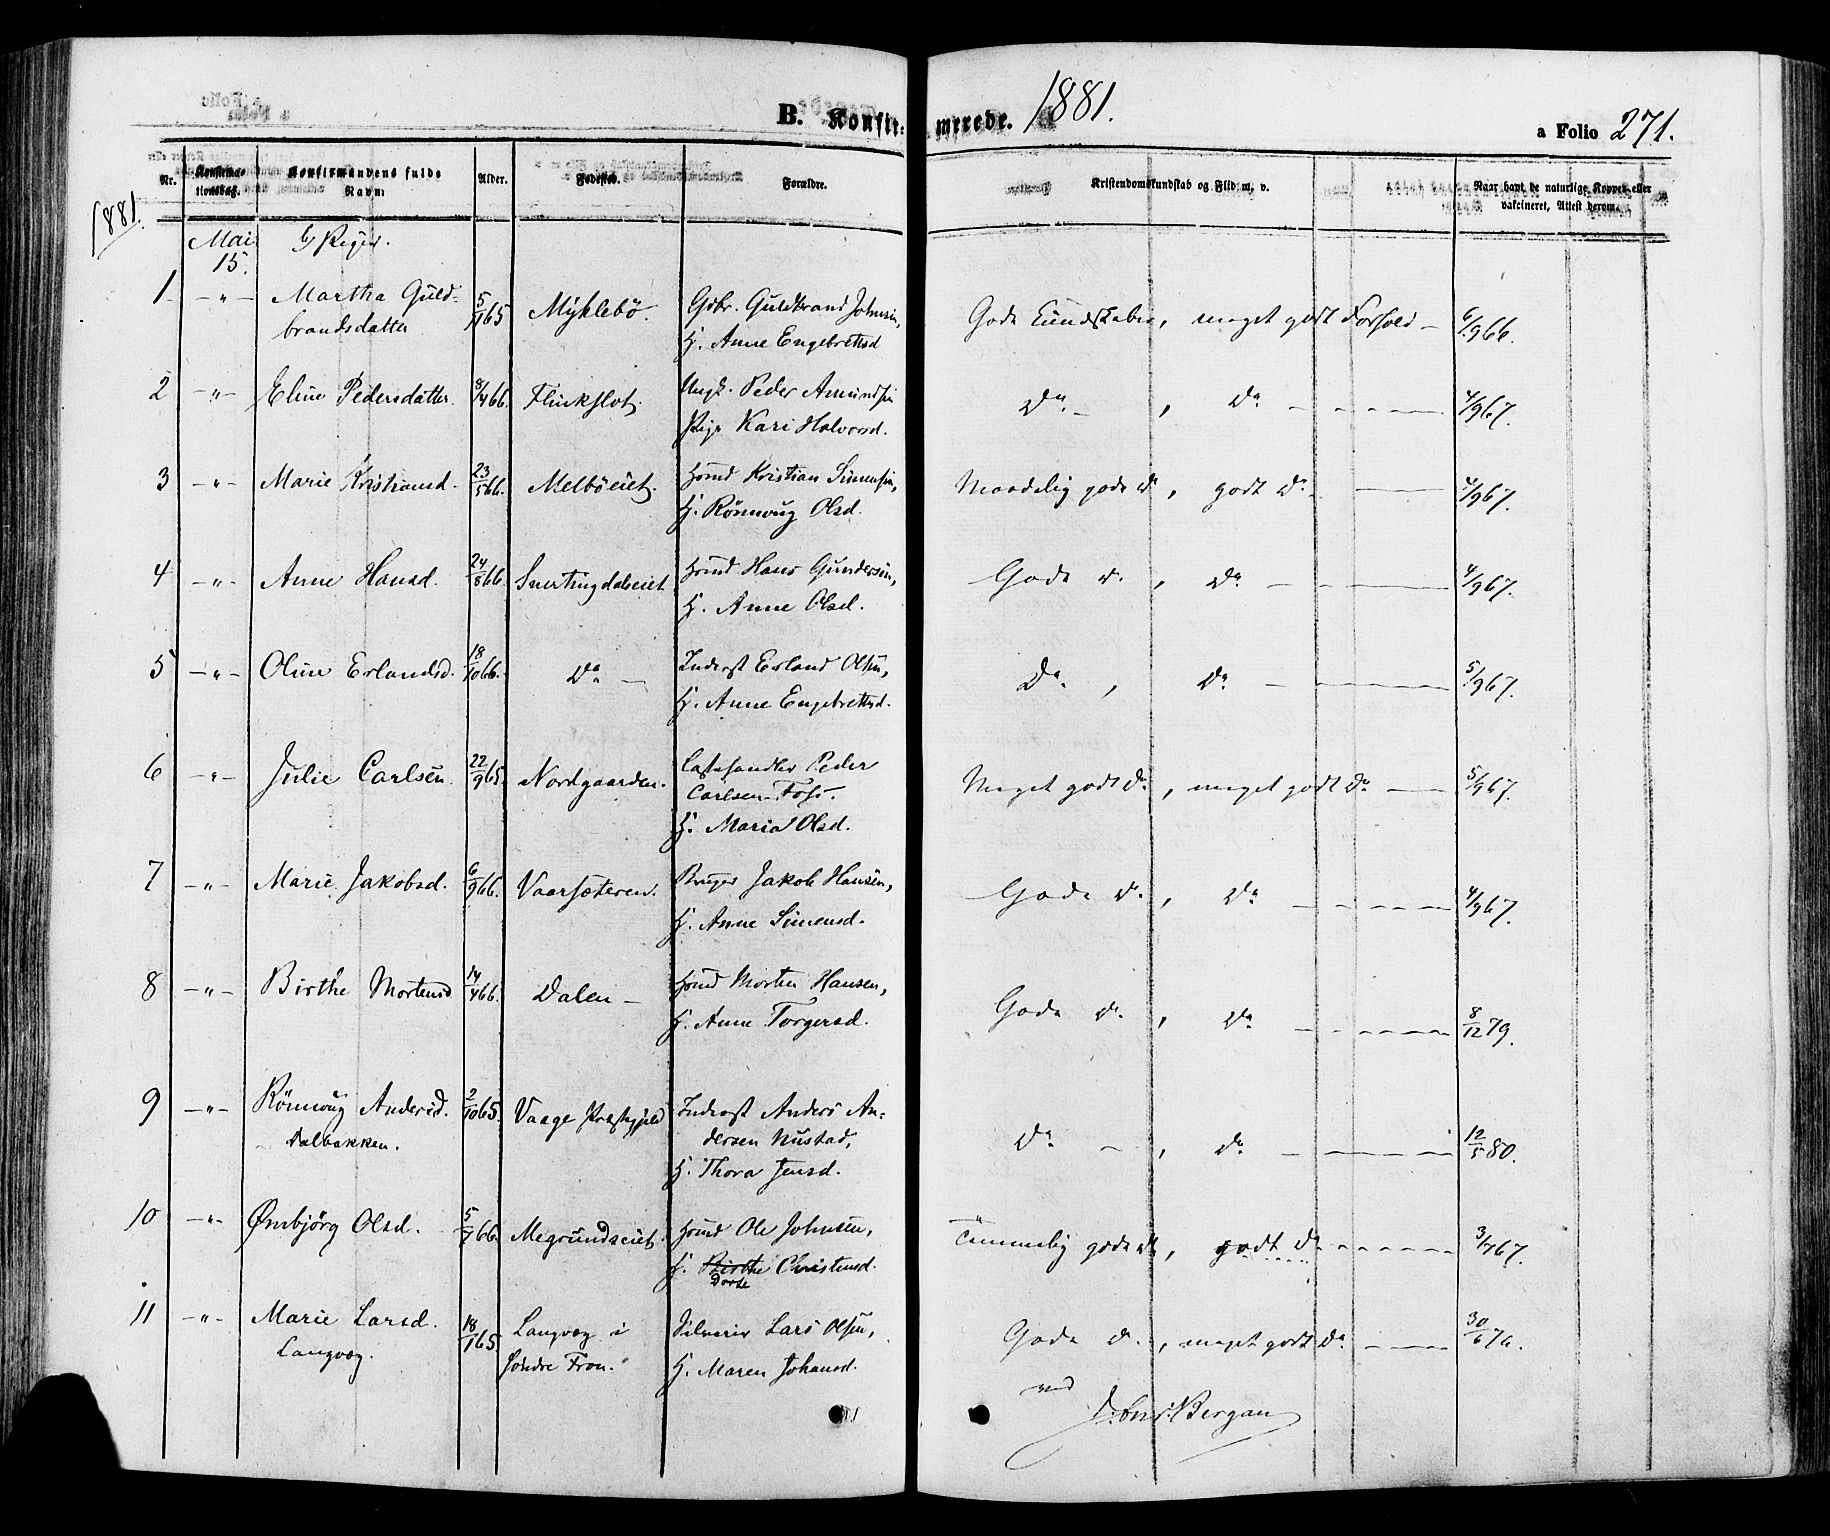 B. Konfirmerede. 1881.
a Folio 271.
Nr. Konfirmationsdag. Konfirmandens fulde Navn. Alder. Fødested. Forældre. Kristendomskundskab og Flid m. v. Naar havt de naturlige Kopper eller vakcineret, Attest derom.
1881.
Mai 15. b) Piger.
1 - " - Martha Guld- 5/11 65 Myklebö. Gdbr. Guldbrand Johnsen, Gode Kundskaber, meget godt Forhold - 6/9 66.
brandsdatter H. Anne Engebretsd
2 - " - Eline Pedersdatter. 8/4 66. Ungk. Peder Amundsen Do - , Do - 4/9 67.
Pige Kari Halvorsd.
3 - " - Marie Kristiansd. 23/5 66. Melböeiet. Husmd Kristian Simensen, Maadelig gode Do, godt Do - 4/9 67.
H. Rönnoug Olsd.
4 - " - Anne Hansd. 24/8 66. Snertingdalseiet Husmd Hans Gundersen, Gode Do, Do - 4/9 67.
H. Anne Olsd.
5 - " - Oline Erlandsd. 18/10 66. Do - Inderst Erland Olsen, Do, Do - 5/9 67.
H. Anne Engebretsd.
6 - " - Julie Carlsen. 22/9 65. Nordgaarden. Peder Meget godt Do, meget godt Do - 5/9 67.
Carlsen Foss.
H. Maria Olsd.
7 - " - Marie Jakobsd. 6/9 66. Vaarsæteren. Bruger Jakob Hansen, Gode Do, Do - 4/9 67.
H. Anne Simensd.
8 - " - Birthe Mortensd 14/4 66. Dalen - Husmd Morten Hansen, Gode Do, Do - 8/12 79.
H. Anne Torgersd.
9 - " - Rönnoug Andersd. 2/10 65. Vaage Præstegjeld Inderst Anders An- Do - , Do - 12/5 80.
Dalbakken. dersen Nustad,
H. Thora Jensd.
10 - " - Ømbjörg Olsd. 5/7 66. Megrundseiet. Husmd Ole Johnsen, Temmelig gode Do, godt Do - 3/7 67.
H. Birthe Christensd.
Dorte
11 - " - Marie Larsd. 18/1 65. Langvæg i Lars Olsen, Gode Do, meget godt Do - 30/6 76.
Langvæg. Söndre Fron. H. Maren Johansd.
ved
Bergan